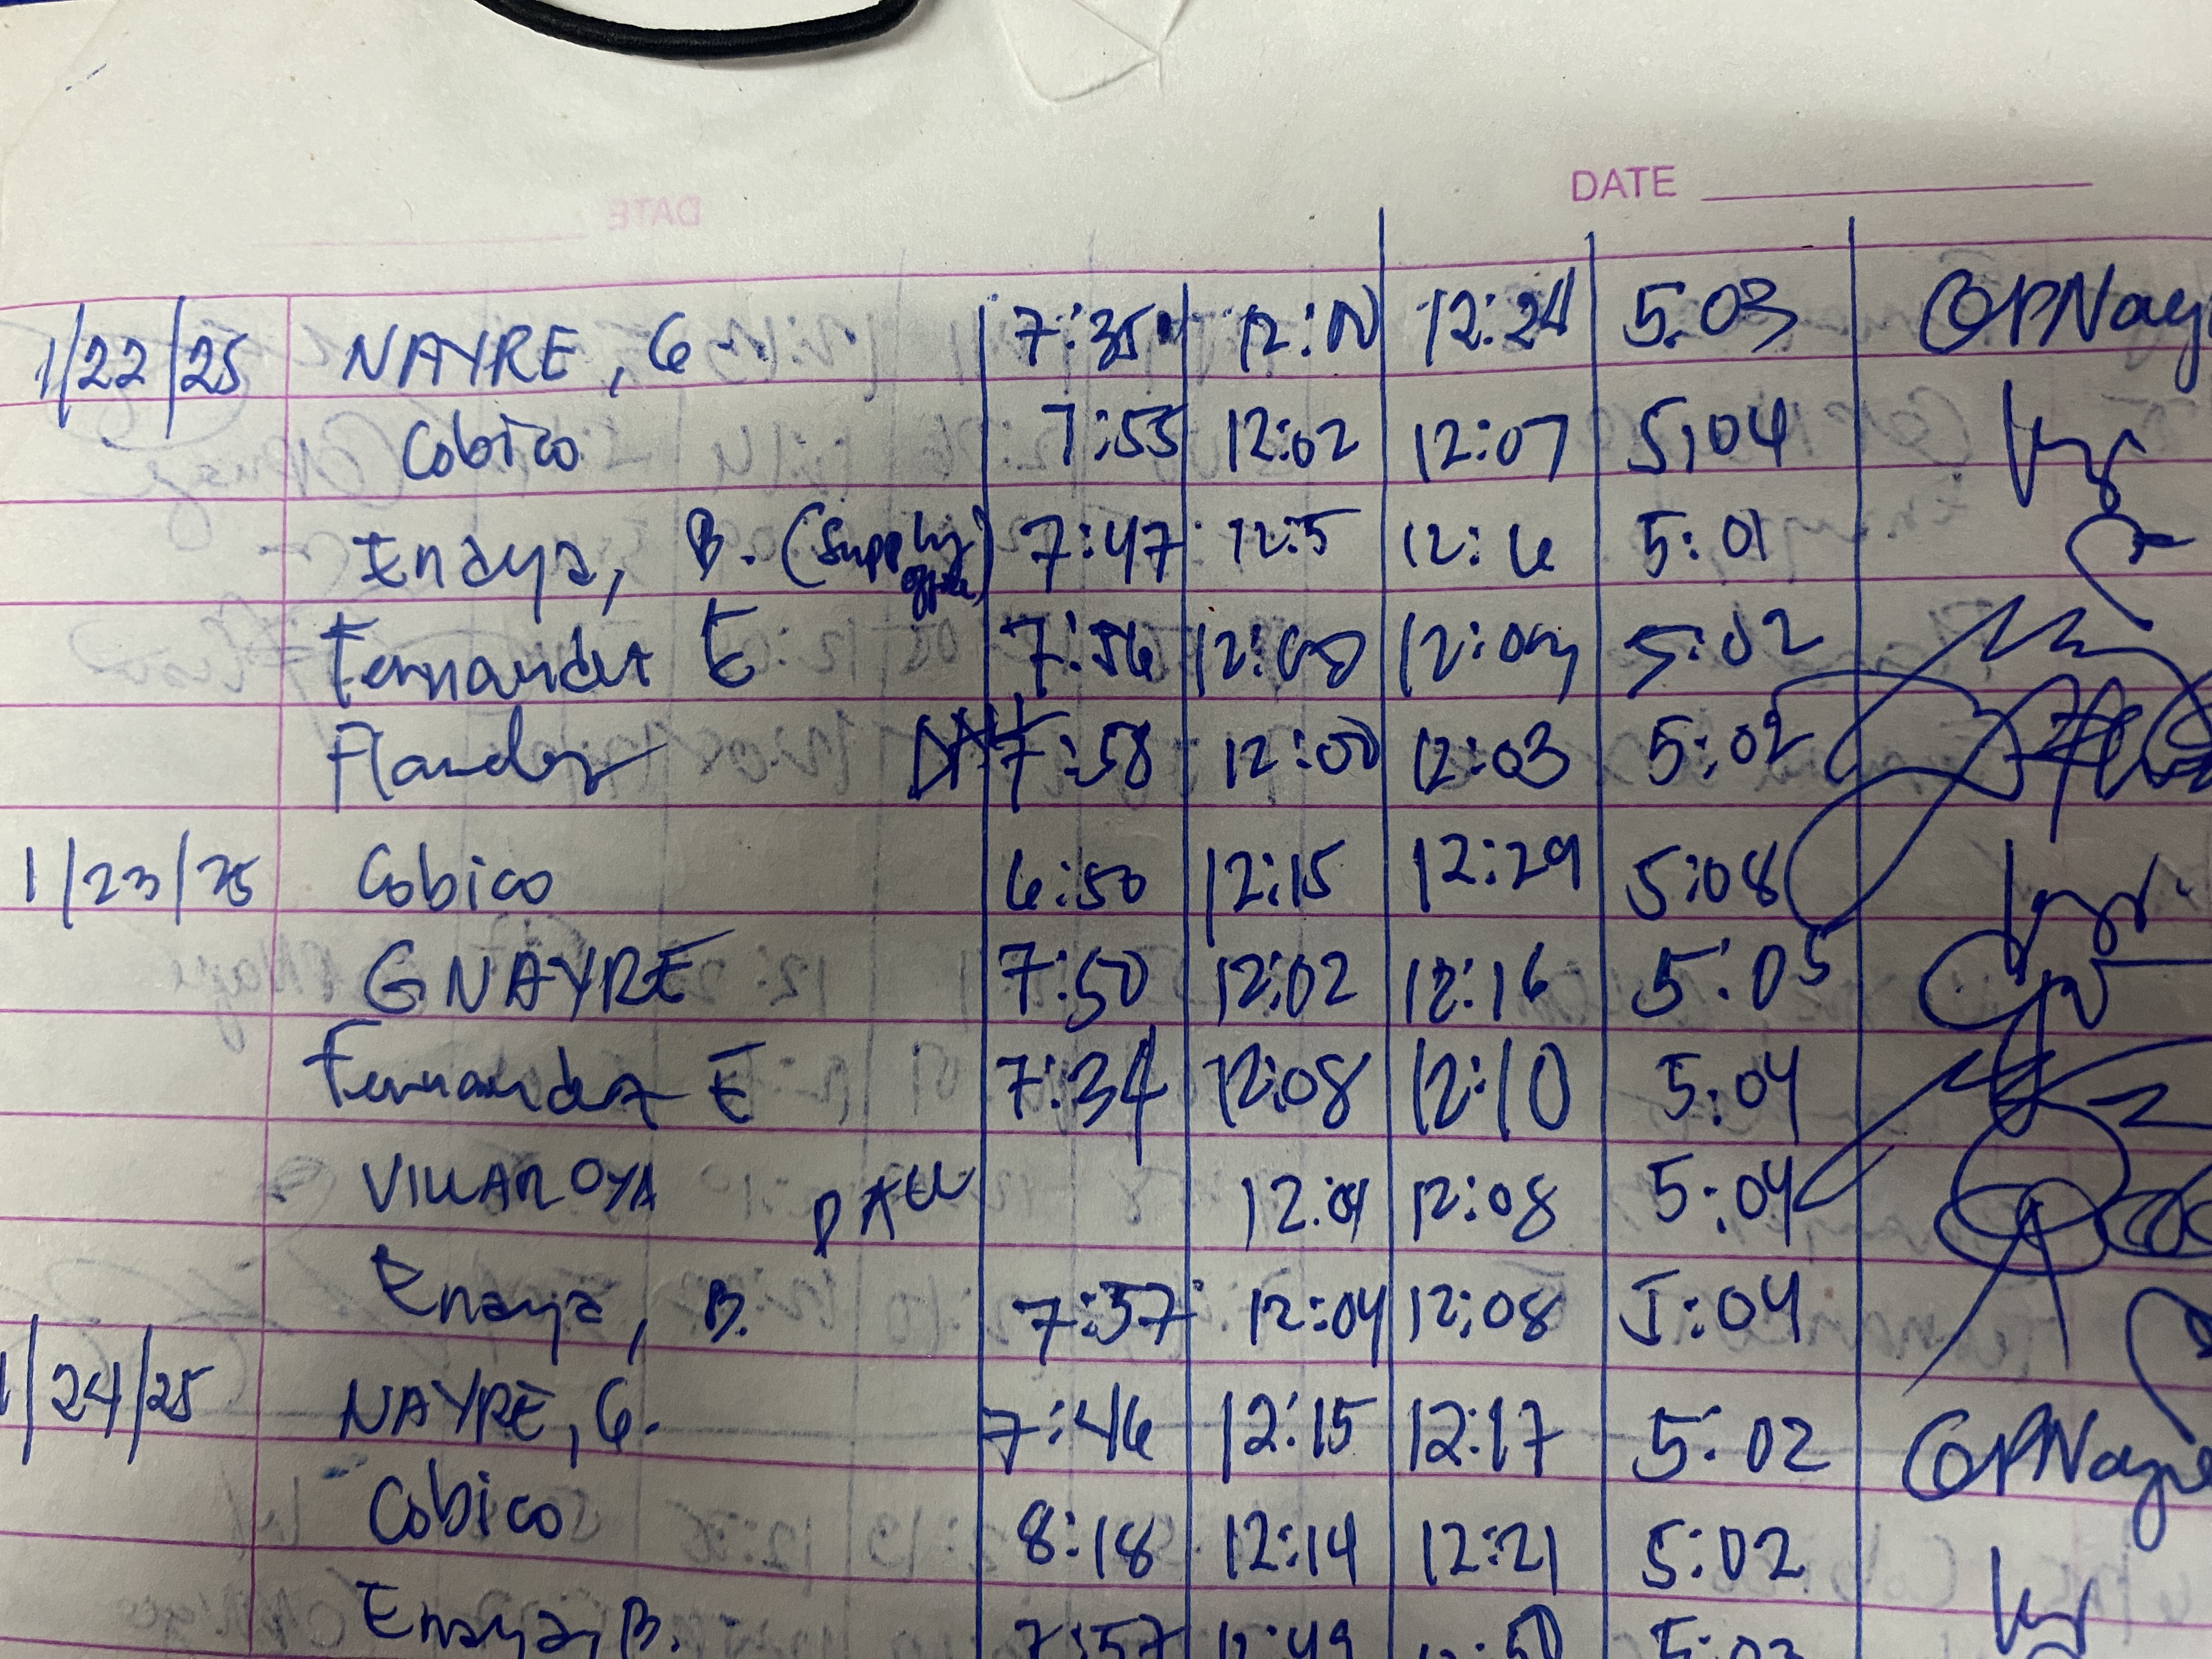 DATE
1/22/25 NAYRE, G. 7:35 12:00 12:24 5:03 GPNay
Cobico 7:55 12:02 12:07 5:04
Enaya, B. (Supply office) 7:47 12:5 12:6 5:01
Fernandez E 7:56 12:00 12:03 5:02
7:58 12:00 12:03 5:02
1/23/25 Cobico 6:50 12:15 12:29 5:08
G NAYRE 7:50 12:02 12:16 5:05
Fernandez E 7:34 12:08 12:10 5:04
VILLAROYA 12:04 12:08 5:04
Enaya, B. 7:57 12:04 12:08 5:04
1/24/25 NAYRE, G. 7:46 12:15 12:17 5:02 GPNayre
Cobico 8:18 12:14 12:21 5:02
Enaya, B. 7:57 12:49 12:50 5:03